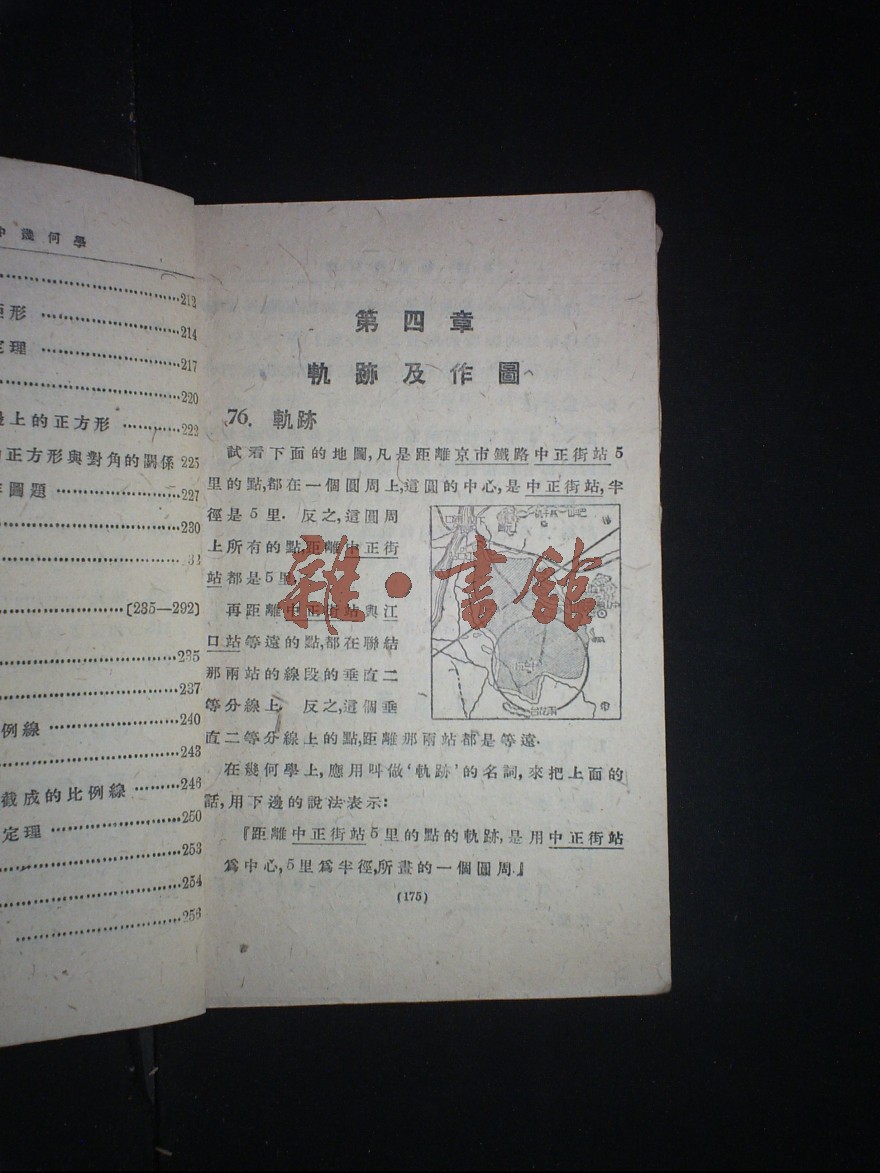 幾何學
212
形 214
定理 217
220
上的正方形 223
正方形與對角的關係 225
圖題 227
230
[285—292]
235
237
例線 240
243
截成的比例線 246
定理 250
253
254
256
第四章
軌跡及作圖
76. 軌跡
試看下面的地圖,凡是距離京市鐵路中正街站5
里的點,都在一個圓周上,這圓的中心,是中正街站,半
徑是5里. 反之,這圓周
上所有的點,距離中正街
站都是5里.
再距離中正街站與江
口站等遠的點,都在聯結
那兩站的線段的垂直二
等分線上. 反之,這個垂
直二等分線上的點,距離那兩站都是等遠.
在幾何學上,應用叫做‘軌跡’的名詞,來把上面的
話,用下邊的說法表示:
『距離中正街站5里的點的軌跡,是用中正街站
爲中心,5里爲半徑,所畫的一個圓周.』
(175)
雜·書館